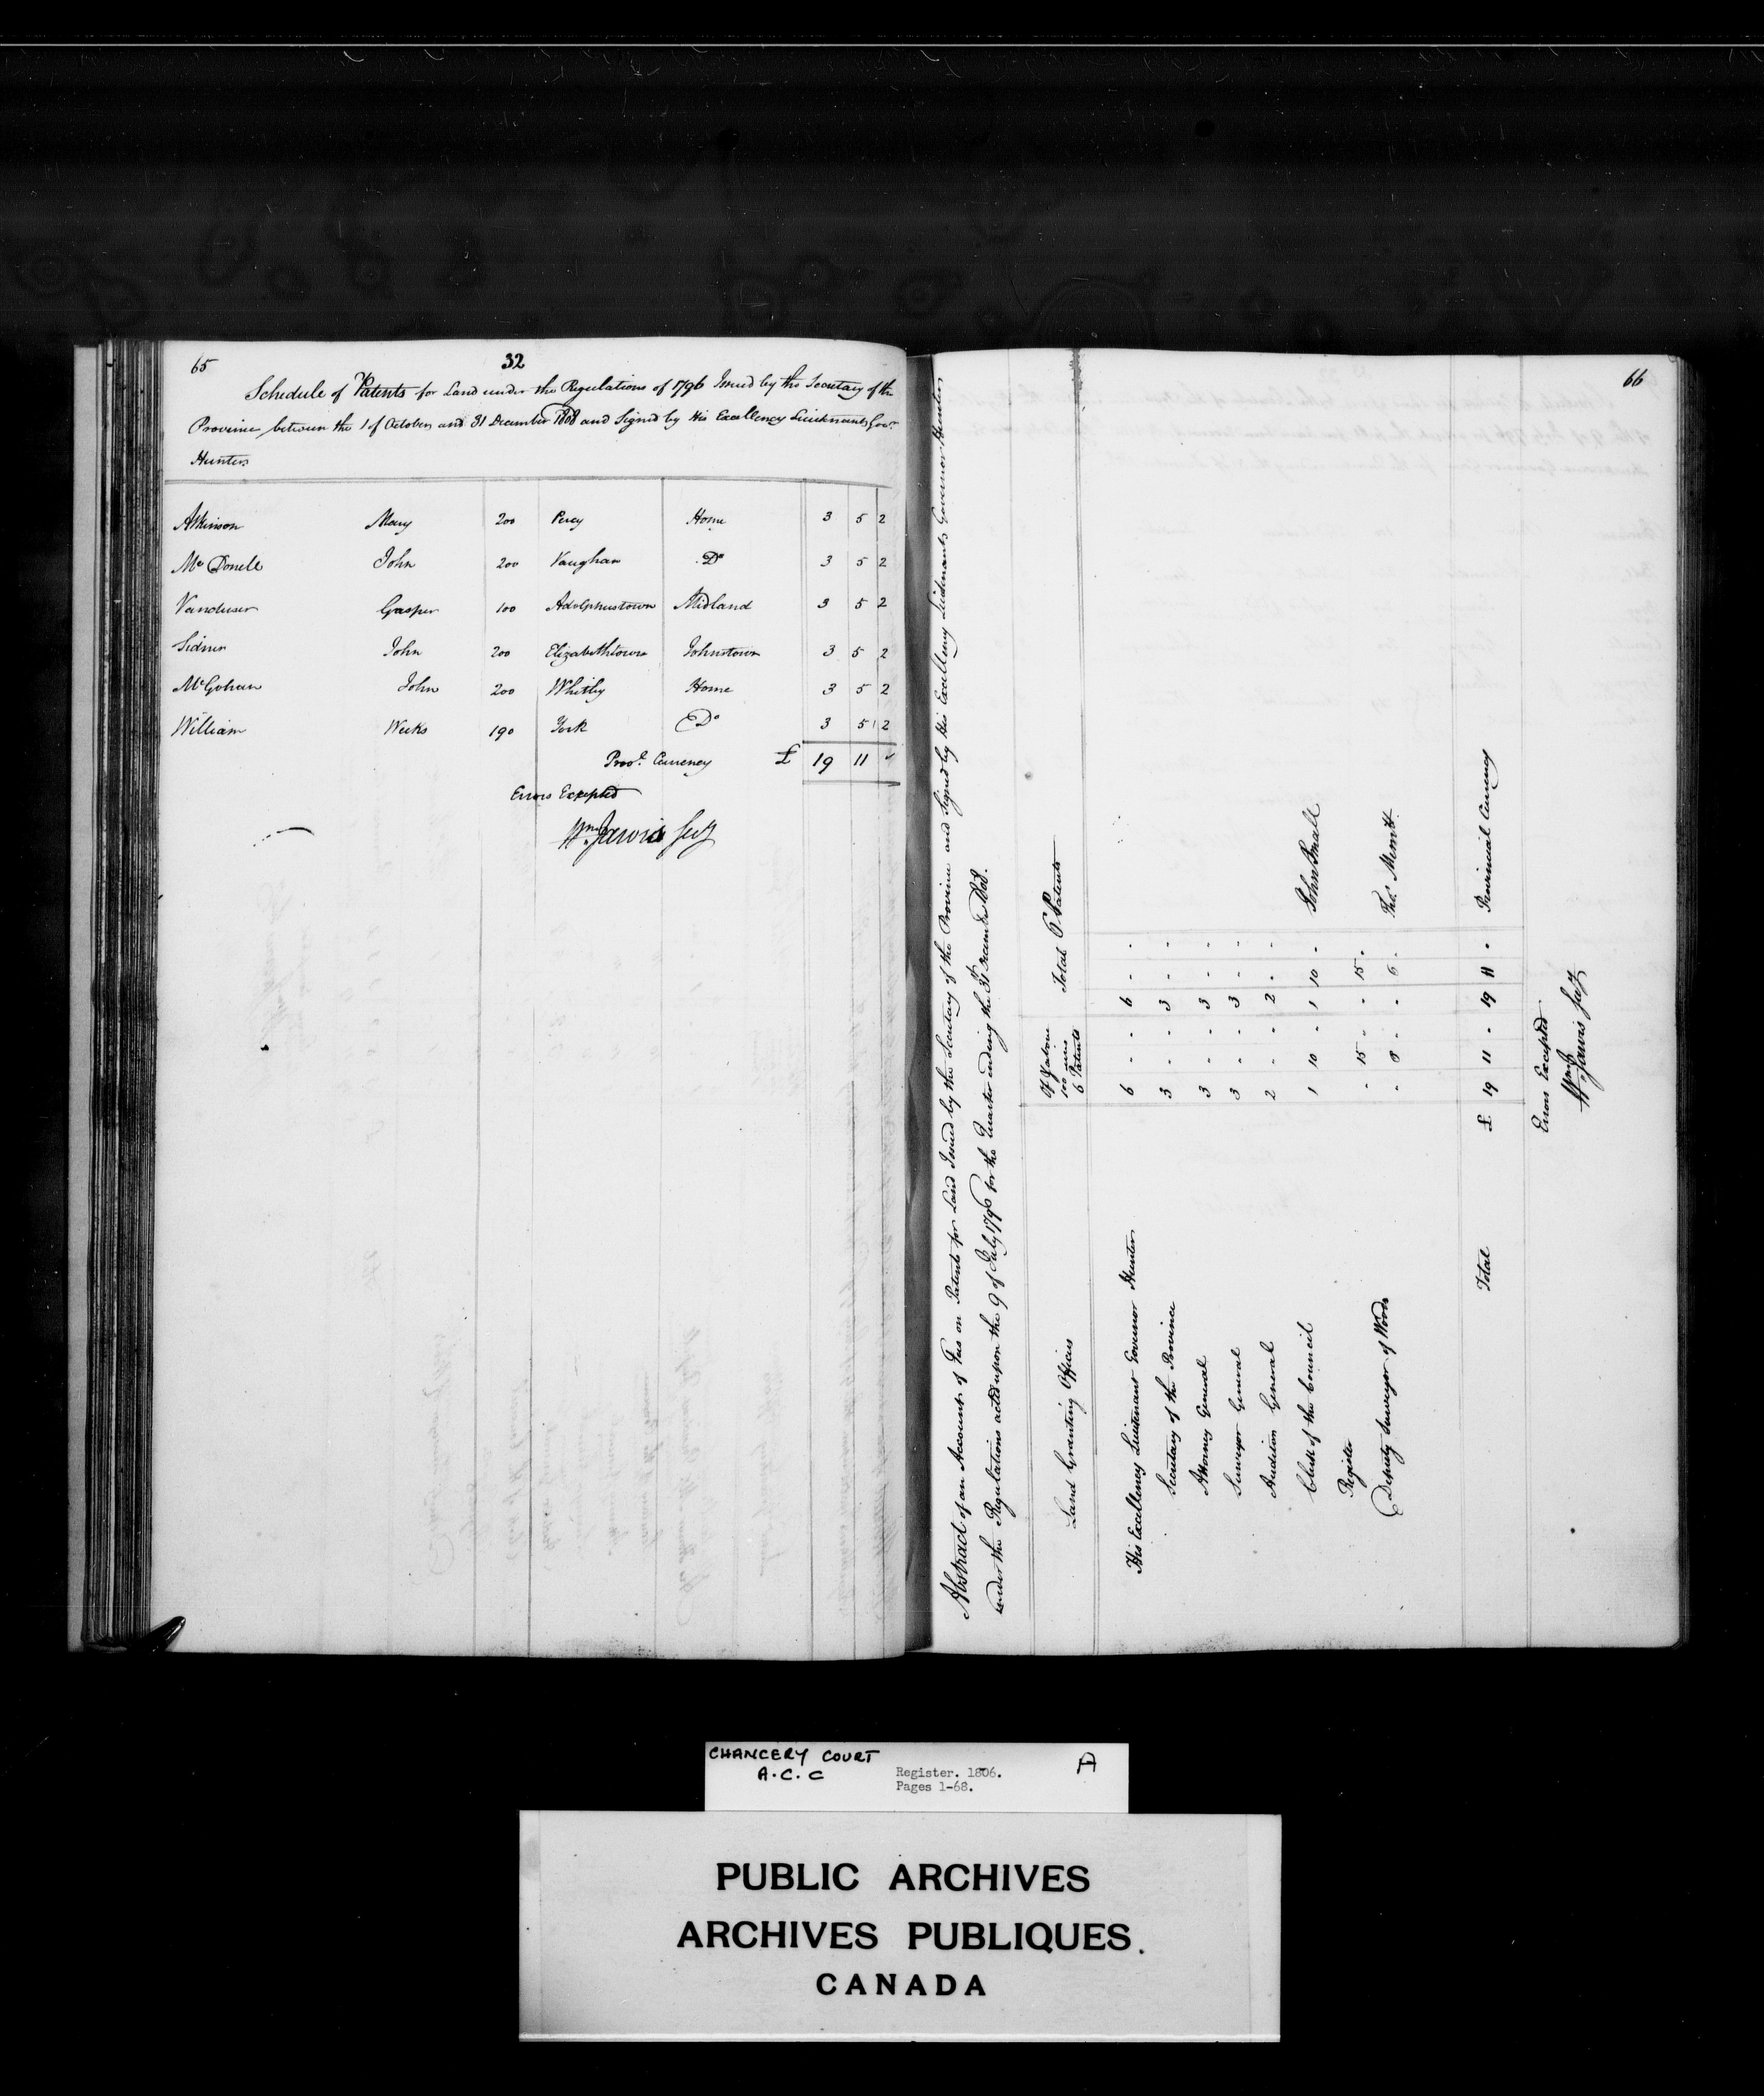 65
32
Schedule of Patents for Land under the Regulations of 1796 Issued by the Secretary of the
Province between the 1 of October and 31 December 1808 and Signed by His Excellency Lieutenant Govr.
Hunter
Atkinson Mary 200 Percy Home 3 5 2
Mc Donell John 200 Vaughan Do 3 5 2
Vanduser Gasper 100 Adolphustown Midland 3 5 2
Sidner John 200 Elizabethtown Johnstown 3 5 2
McGohan John 200 Whitby Home 3 5 2
William Weeks 190 York Do 3 5 2
Provl. Currency £ 19 11
Errors Excepted
Wm Jarvis Secy
66
Abstract of an Account of Fees on Patents for Land Issued by the Secretary of the Province and Signed by His Excellency Lieutenant Governor Hunter
under the Regulations acted upon the 9 of July 1796 for the Quarter ending the 31 December 1808.
Land Granting Officers 100 6 Patents Total 6 Patents
His Excellency Lieutenant Governor Hunter 6 - - 6 - -
Secretary of the Province 3 - - 3 - -
Attorney General 3 - - 3 - -
Surveyor General 3 - - 3 - -
Auditor General 2 - - 2 - -
Clerk of the Council 1 10 - 1 10 - John Small
Register - 15 - - 15 -
Deputy Surveyor of Woods - 6 - - 6 - Thos. Merritt
Total £ 19 11 - 19 11 - Provincial Currency
Errors Excepted
Wm Jarvis Secy
CHANCERY COURT
A.C.C
Register. 1806.
Pages 1-68.
A
PUBLIC ARCHIVES
ARCHIVES PUBLIQUES.
CANADA